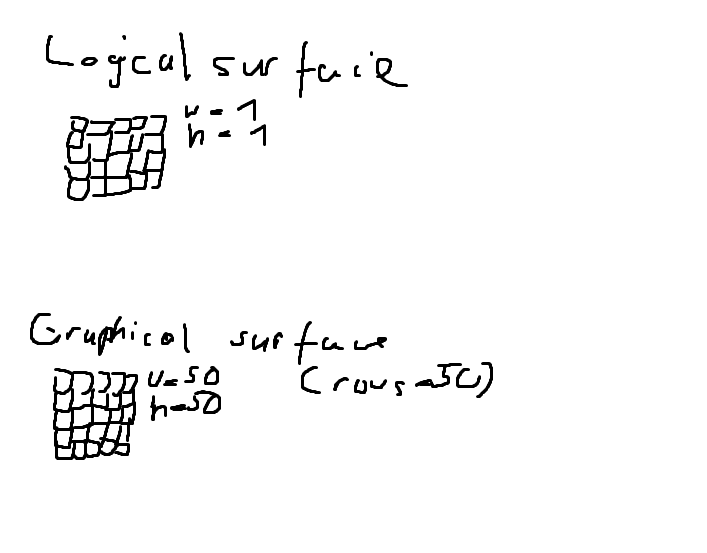 Logical surface
w = 1
h = 1
Graphical surface
w=50
(rows=50)
h=50